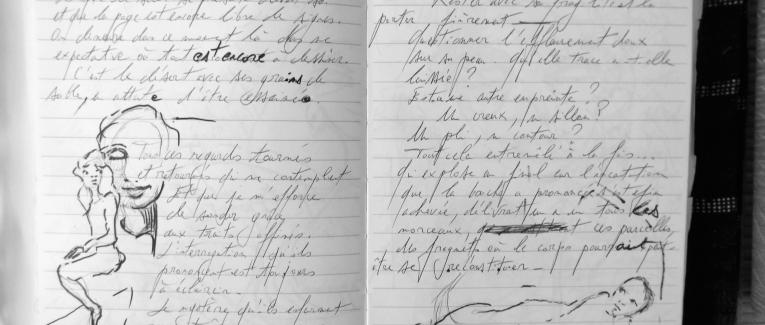 et que la page est encore libre de signes.
On demeure dans ce moment là dans une
expectative où tout est encore à dessiner.
C'est le désert avec ses grains de
sable, en attente d'être
Tous ces regards tournés
et retournés qui se contemplent
Et que je m'efforce
de
aux traits
L'interrogation qu'ils
prononcent est toujours
à éclaircir.
Le mystère qu'ils enferment
Rester avec
porter fièrement
Questionner l'effleurement doux
sur sa peau. Quelle trace a-t-elle
laissée ?
Est-ce une autre empreinte ?
Un creux, un sillon ?
Un pli, un contour ?
Tout cela entremêlé à la fois...
Qui explose au final sur l'
que la bouche a prononcée s'est enfin
achevée, délivrant un à un tous les
morceaux, ces parcelles,
des fragments où le corps pourrait peut-
être se reconstituer -